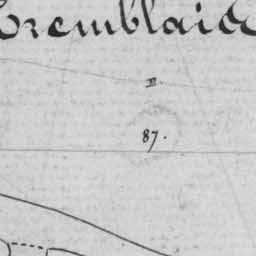 Tremblaide
87.